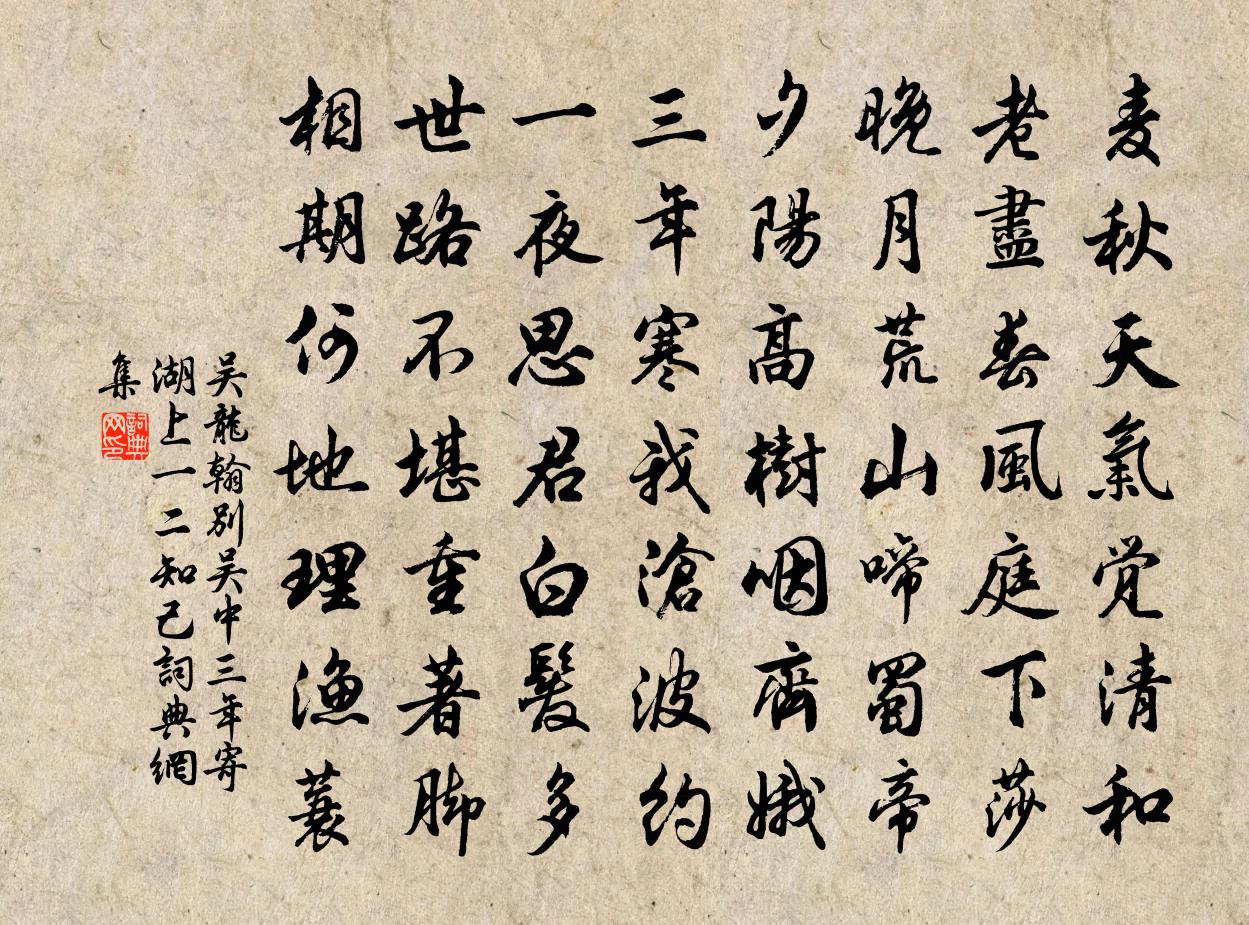 麦秋天氣觉清和
老盡春風庭下莎
晚月荒山啼蜀帝
夕陽高樹咽齊娥
三年寒我滄波約
一夜思君白髮多
世路不堪重著脚
相期何地理漁蓑
吴龍翰别吴中三年寄
湖上一二知己詞典網
集
詞典网印